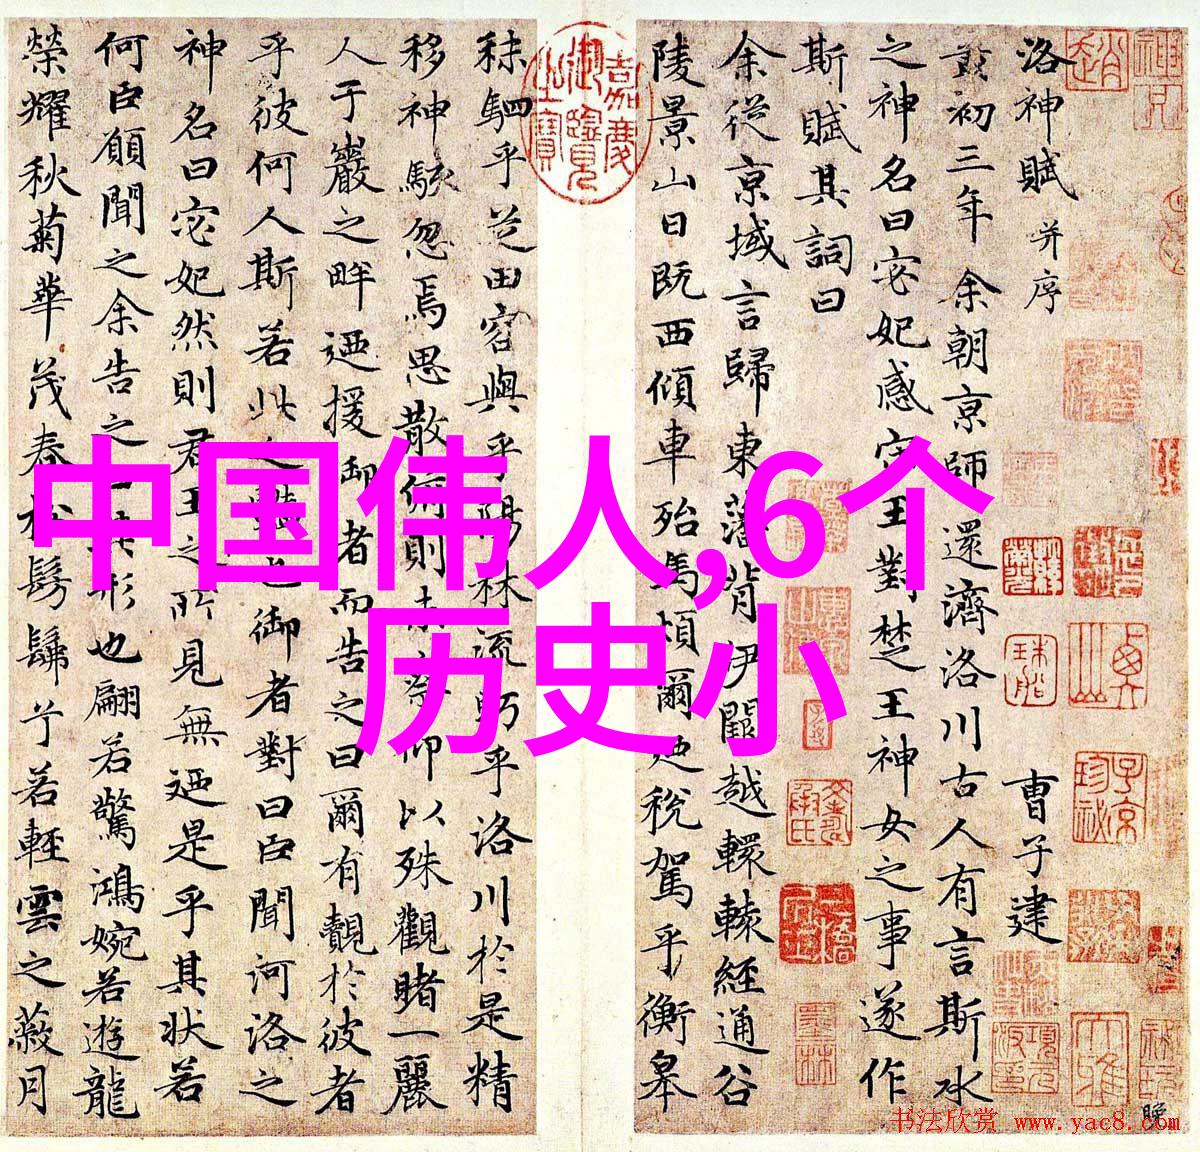 洛神賦 并序
曹子建
黃初三年余朝京師還濟洛川古人有言斯水
之神名曰宓妃感宋王對楚王神女之事遂作
斯賦其詞曰
余從京域言歸東藩背伊闕越轘轅經通谷
陵景山日既西傾車殆馬煩爾乃稅駕乎衡皋
秣駟乎芝田容與乎陽林流眄乎洛川於是精
移神駭忽焉思散俯則未察仰以殊觀睹一麗
人于巖之畔迺援御者而告之曰爾有覿於彼者
乎彼何人斯若此之豔也御者對曰臣聞河洛之
神名曰宓妃然則君王之所見無迺是乎其狀若
何臣願聞之余告之曰其形也翩若驚鴻婉若遊龍
榮耀秋菊華茂春松髣髴兮若輕雲之蔽月
嘉慶御覽之寶
中国伟人,6个
历史小
书法欣赏 www.yac8.com